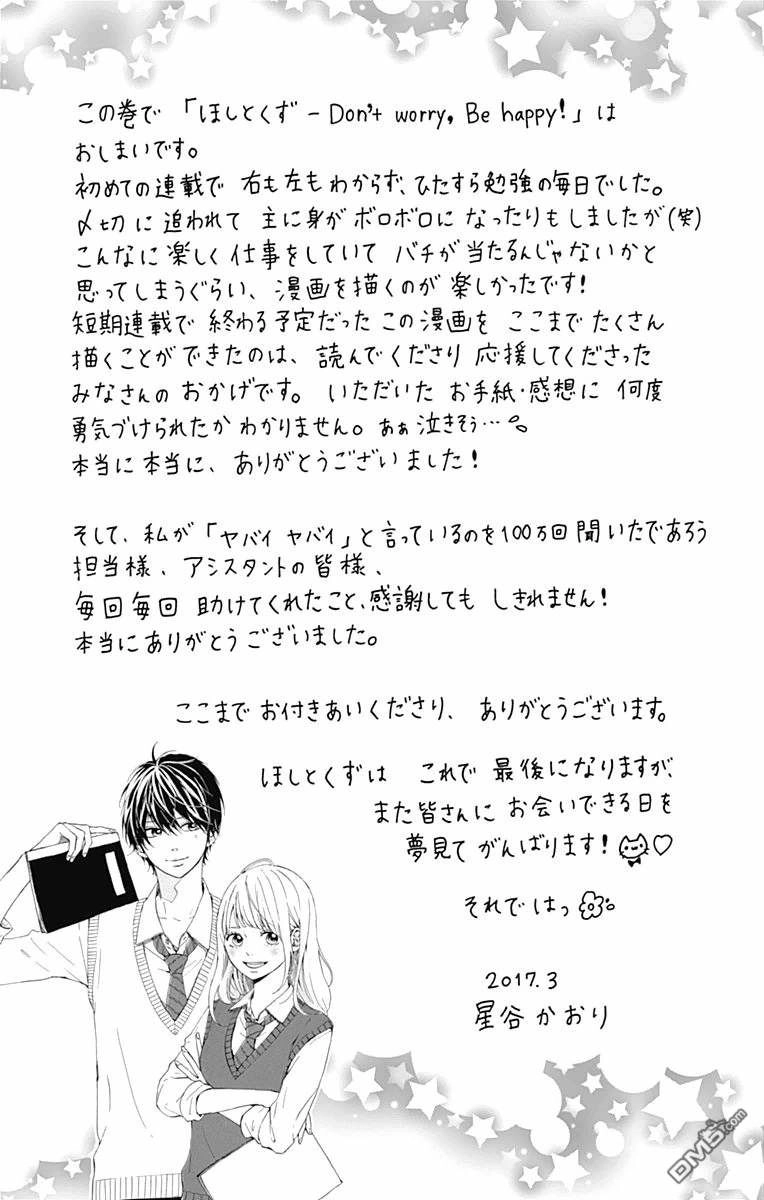 この巻で「ほしとくず − Don't worry, Be happy!」は
おしまいです。
初めての連載で 右も左もわからず、ひたすら勉強の毎日でした。
〆切に 追われて 主に身が ボロボロに なったりもしましたが(笑)
こんなに 楽しく 仕事をしていて バチが 当たるんじゃないかと
思ってしまうぐらい、漫画を描くのが 楽しかったです!
短期連載で 終わる予定だった この漫画を ここまで たくさん
描くことが できたのは、読んでくださり 応援してくださった
みなさんの おかげです。 いただいた お手紙・感想に 何度
勇気づけられたか わかりません。あぁ泣きそう…
本当に本当に、ありがとうございました!
そして、私が「ヤバイ ヤバイ」と言っているのを100万回聞いたであろう
担当様、アシスタントの皆様、
毎回毎回 助けてくれたこと、感謝しても しきれません!
本当にありがとうございました。
ここまで お付きあいくださり、ありがとうございます。
ほしとくずは これで 最後になりますが、
また皆さんに お会いできる日を
夢見て がんばります!♡
それでは っ
2017.3
星谷かおり
DM5.com